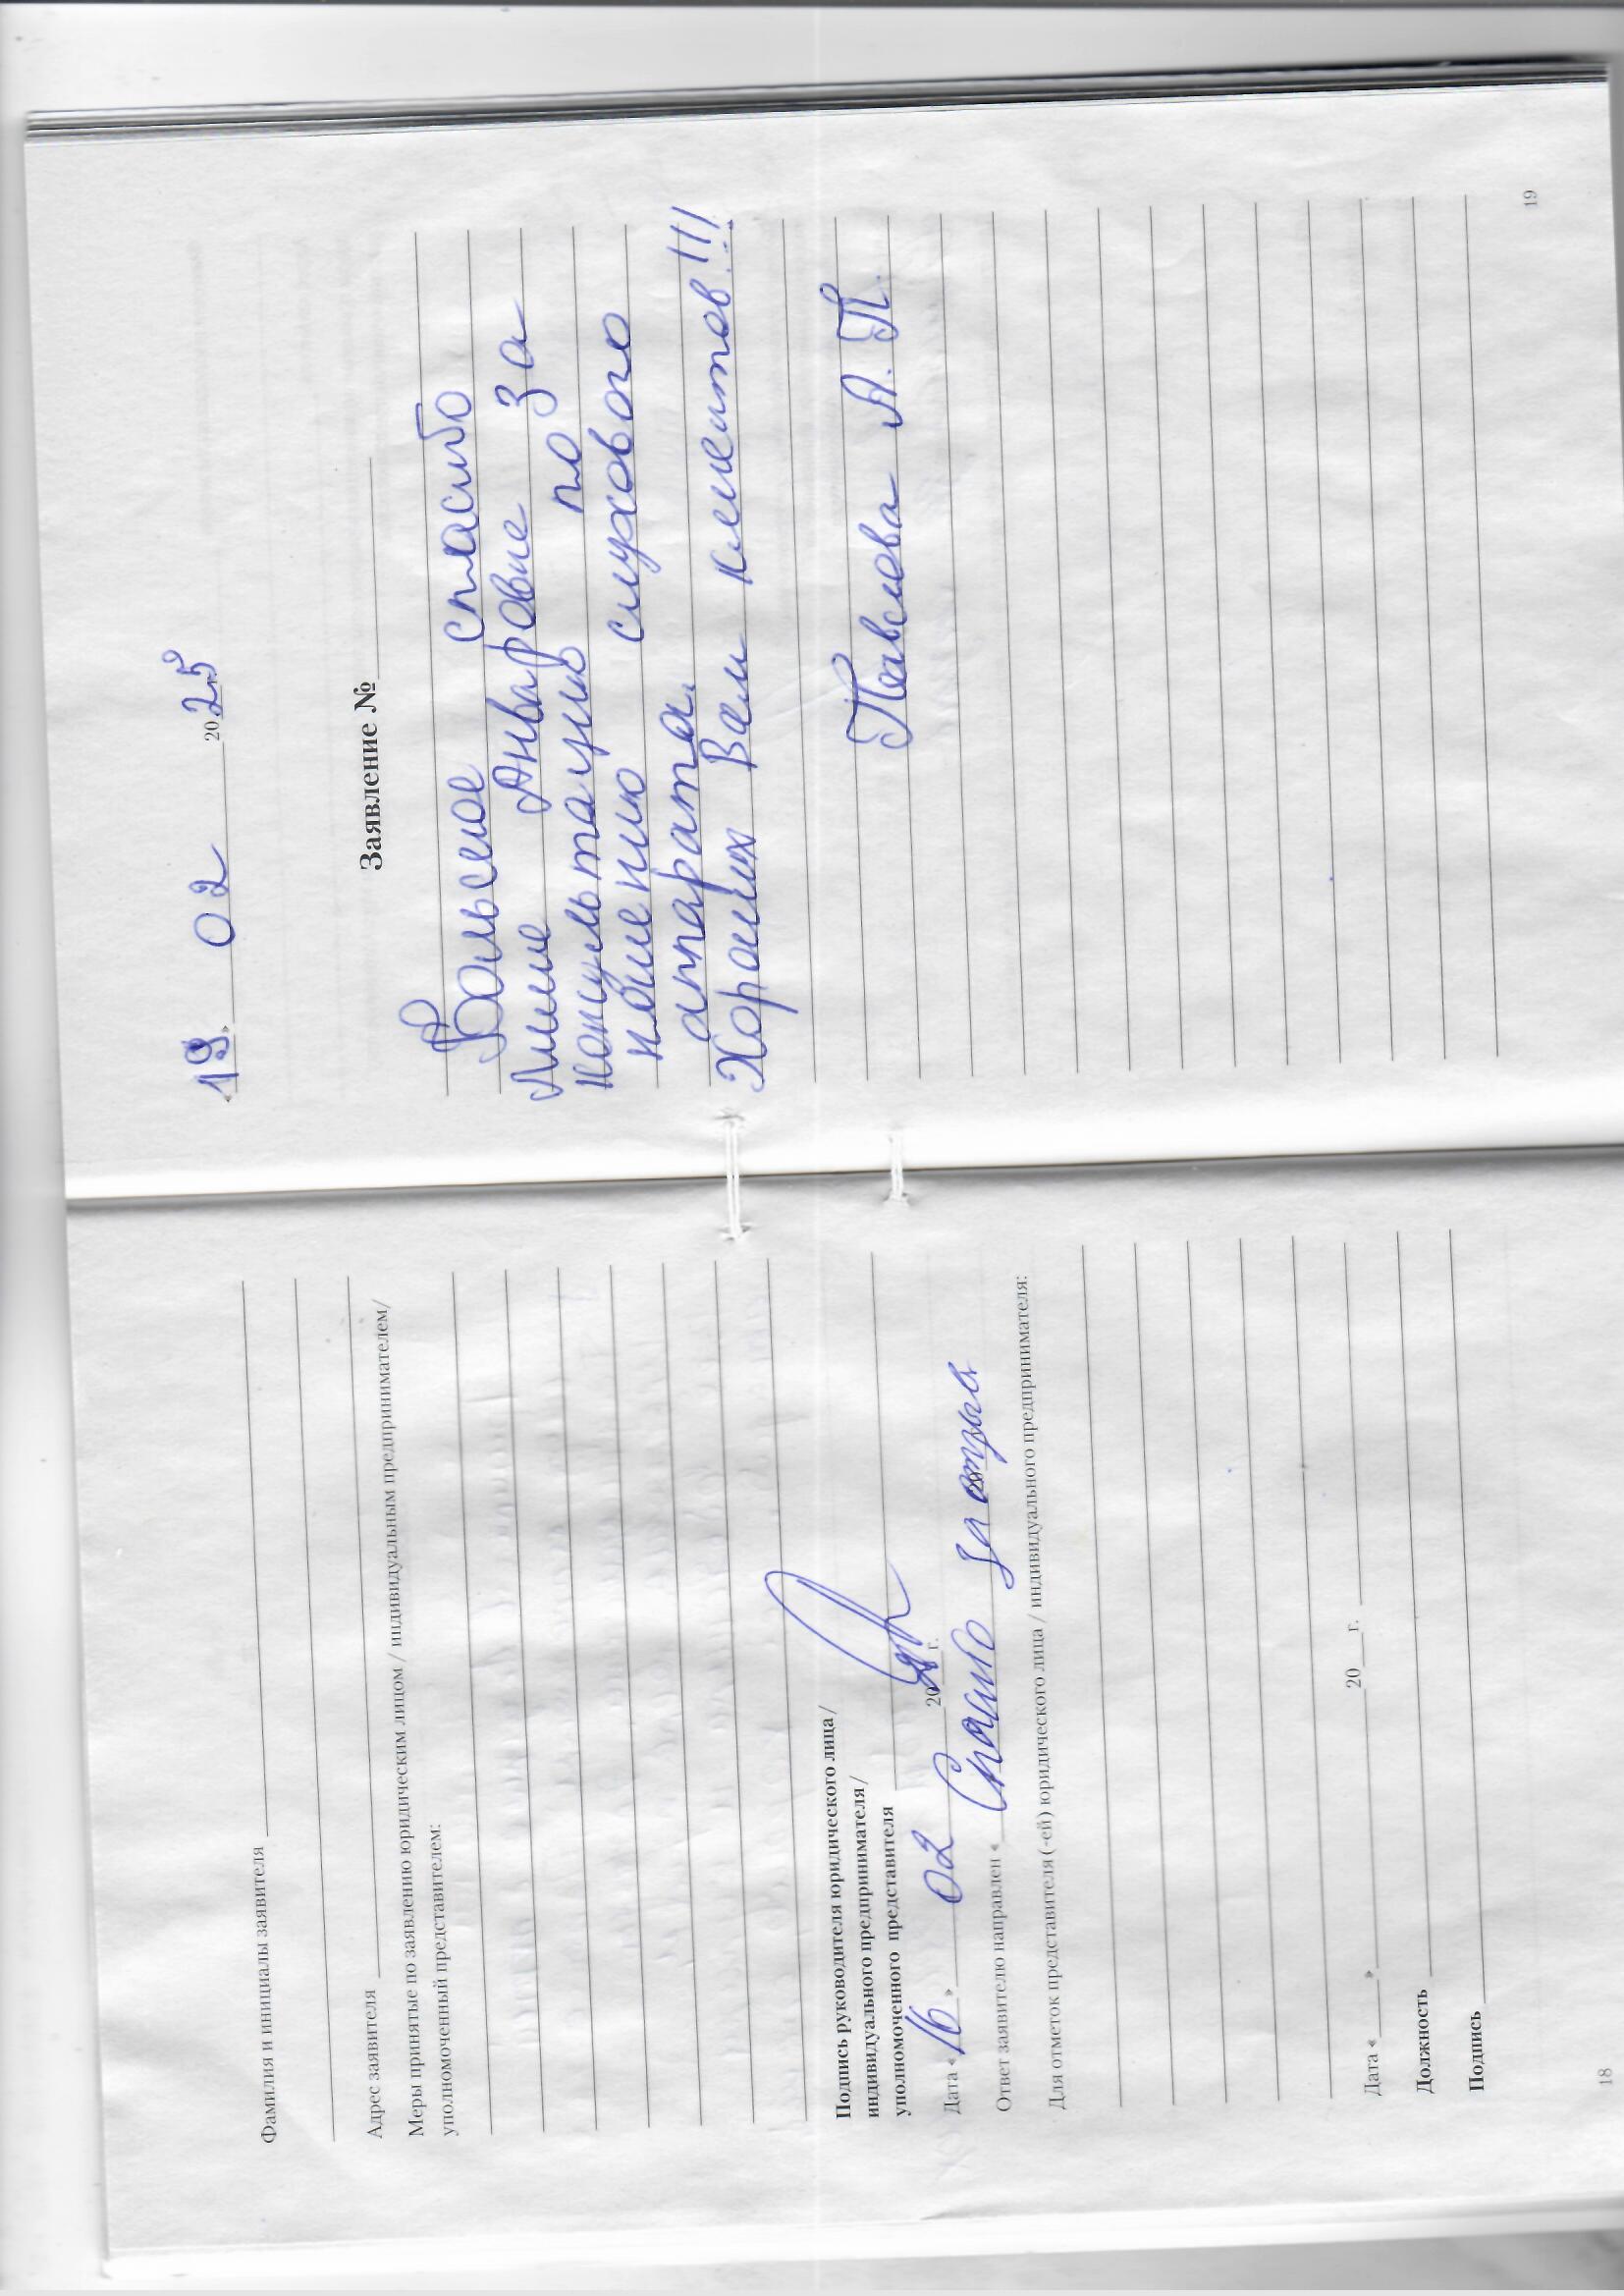 Фамилия и инициалы заявителя
Адрес заявителя
Меры принятые по заявлению юридическим лицом / индивидуальным предпринимателем/
уполномоченный представителем:
Подпись руководителя юридического лица /
индивидуального предпринимателя /
уполномоченного представителя
Дата «16» 02 20 г.
Ответ заявителю направлен « Спасибо за отзыв
Для отметок представителя (-ей) юридического лица / индивидуального предпринимателя:
Дата « » 20 г.
Должность
Подпись
18
«19» 02 2025
Заявление №
Большое спасибо
Анваровне за
консультацию по
ношению слухового
аппарата.
Хороших Вам клиентов!!!
Павлова А. П.
19